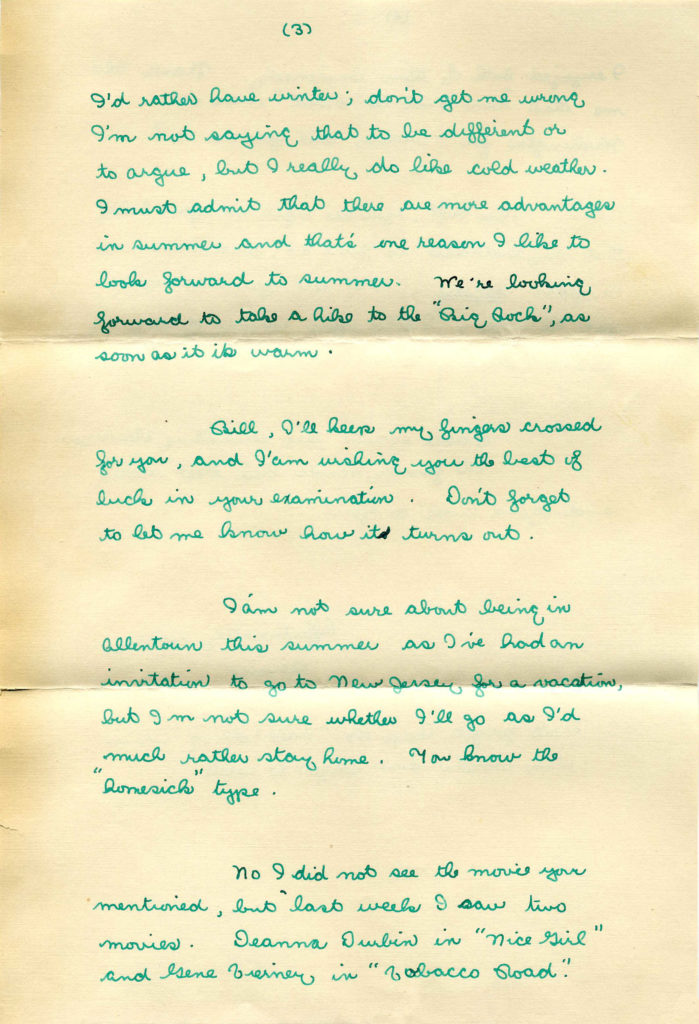 (3)
I'd rather have winter; don't get me wrong
I'm not saying that to be different or
to argue, but I really do like cold weather.
I must admit that there are more advantages
in summer and that's one reason I like to
look forward to summer. We're looking
forward to take a hike to the "Big Rock", as
soon as it is warm.
Bill, I'll keep my fingers crossed
for you, and I'am wishing you the best of
luck in your examination. Don't forget
to let me know how it turns out.
I'am not sure about being in
Allentown this summer as I've had an
invitation to go to New Jersey for a vacation,
but I'm not sure whether I'll go as I'd
much rather stay home. You know the
"homesick" type.
No I did not see the movie your
mentioned, but last week I saw two
movies. Deanna Durbin in "Nice Girl"
and Gene Tierney in "Tobacco Road".